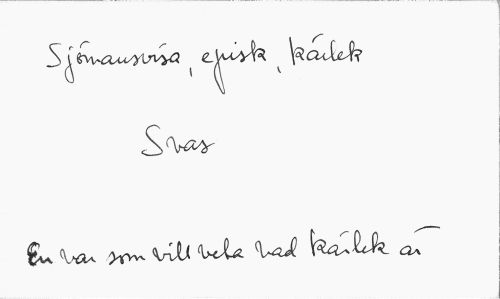 Sjömansvisa, episk, kärlek
Svas
En var som vill veta vad kärlek är